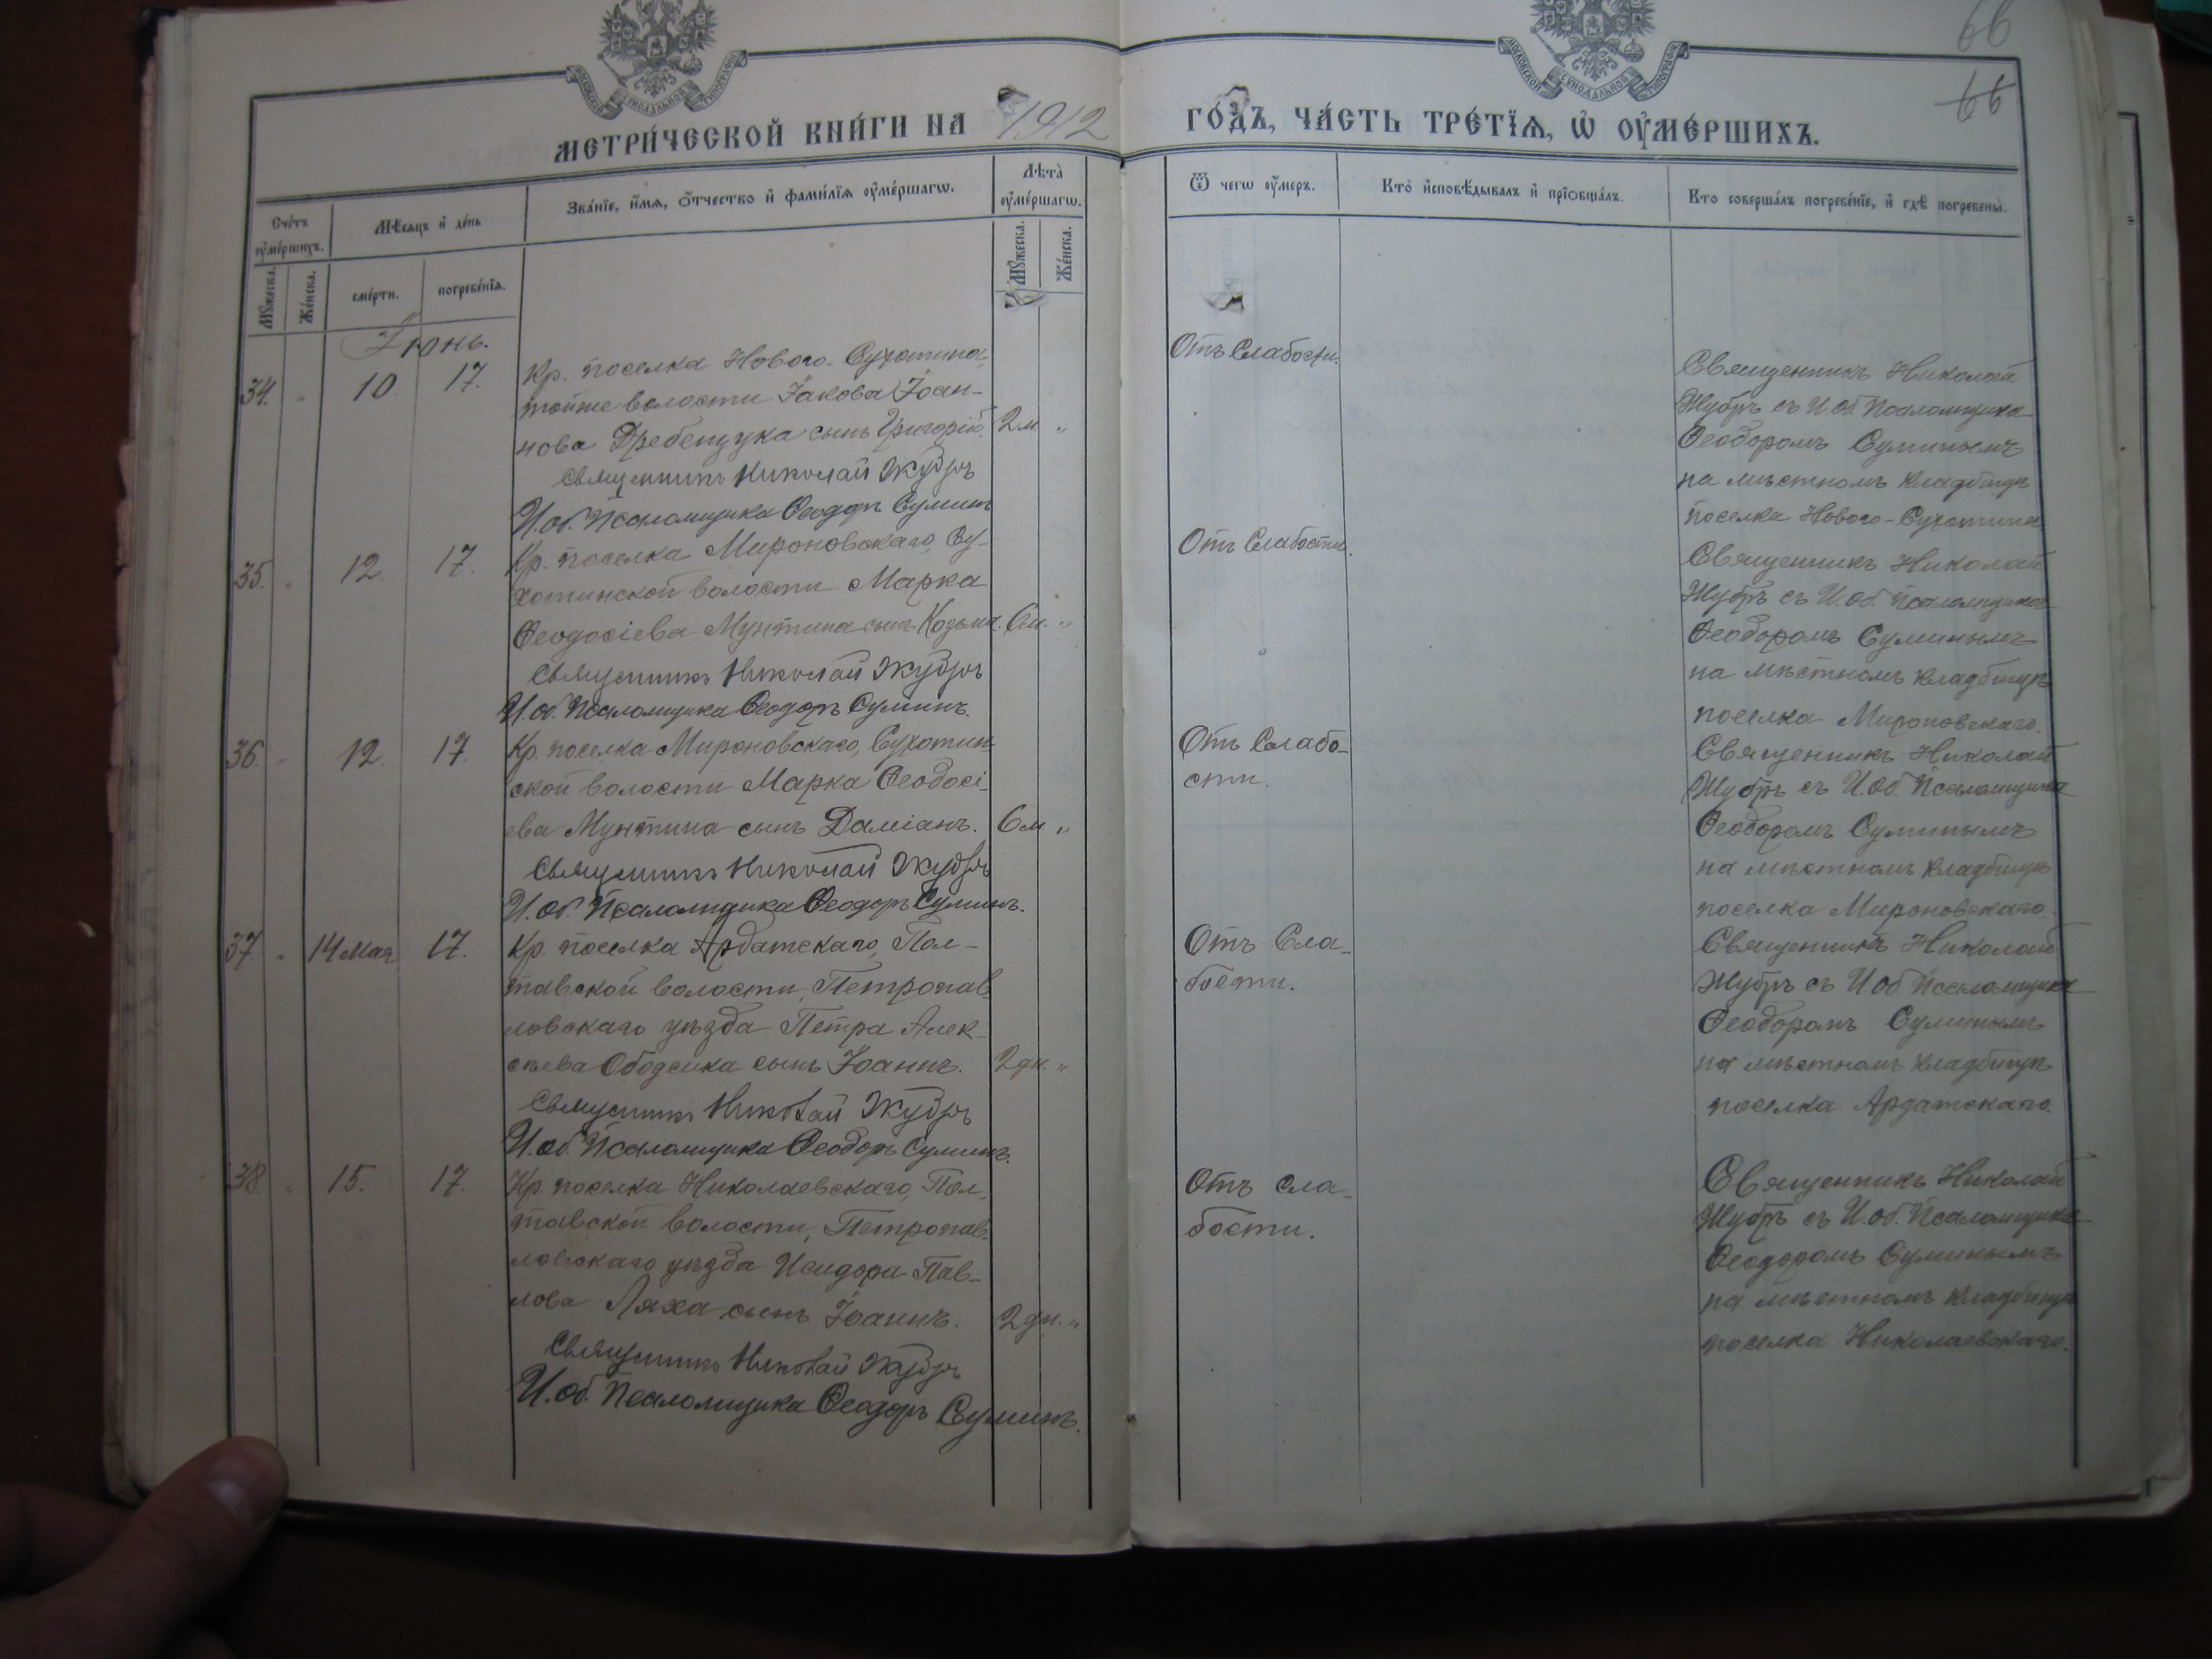 66
66
МОСКОВСКОЙ СУНОДАЛЬНОЙ ТИПОГРАФІИ
МОСКОВСКОЙ СУНОДАЛЬНОЙ ТИПОГРАФІИ
МЕТРИ́ЧЕСКОЙ КНИ́ГИ НА 1912 ГО́ДЪ, ЧА́СТЬ ТРЕ́ТЇѦ, Ѡ҆ ОУ҆МЕ́РШИХЪ.
Сче́тъ оу҆ме́ршихъ.
Мѣ́сяцъ и҆ де́нь
Зва́нїе, и҆́мѧ, ѻ҆́тчество и҆ фами́лїѧ оу҆ме́ршагѡ.
Лѣта̀ оу҆ме́ршагѡ.
Ѿ чегѡ̀ оу҆́меръ.
Кто̀ и҆сповѣ́дывалъ и҆ прїѻбща́лъ.
Кто̀ соверша́лъ погребе́нїе, и҆ гдѣ̀ погребены̀.
Мꙋ́жеска.
Же́нска.
сме́рти.
погребе́нїѧ.
Мꙋ́жеска.
Же́нска.
Іюнь.
34. " 10. 17. Кр. поселка Ново-Сухотина,
тойже волости Іакова Іоан-
нова Дребенчука сынъ Григорій. 2 м. "
Священникъ Николай Жубръ
И. об. Псаломщика Ѳеодоръ Суминъ
Отъ Слабости.
Священникъ Николай
Жубръ съ И. об. Псаломщика
Ѳеодоромъ Суминымъ
на мѣстномъ кладбищѣ
поселка Ново-Сухотина
35. " 12. 17. Кр. поселка Мироновскаго, Су-
хотинской волости Марка
Ѳеодосіева Мунтина сынъ Козьма. 6 м. "
Священникъ Николай Жубръ
И. об. Псаломщика Ѳеодоръ Суминъ.
Отъ Слабости.
Священникъ Николай
Жубръ съ И. об. Псаломщика
Ѳеодоромъ Суминымъ
на мѣстномъ кладбищѣ
поселка Мироновскаго.
36. " 12. 17. Кр. поселка Мироновскаго, Сухотин-
ской волости Марка Ѳеодосі-
ева Мунтина сынъ Даміанъ. 6 м "
Священникъ Николай Жубръ
И. об. Псаломщика Ѳеодоръ Суминъ.
Отъ Слабо-
сти.
Священникъ Николай
Жубръ съ И. об. Псаломщика
Ѳеодоромъ Суминымъ
на мѣстномъ кладбищѣ
поселка Мироновскаго.
37 " 14 мая 17. Кр. поселка Ардатскаго, Пол-
тавской волости, Петропав-
ловскаго уѣзда Петра Алек-
сѣева сынъ Іоаннъ. 2 дн. "
Священникъ Николай Жубръ
И. об. Псаломщика Ѳеодоръ Суминъ.
Отъ Сла-
бости.
Священникъ Николай
Жубръ съ И. об. Псаломщика
Ѳеодоромъ Суминымъ
на мѣстномъ кладбищѣ
поселка Ардатскаго.
38 " 15. 17. Кр. поселка Николаевскаго, Пол-
тавской волости, Петропав-
ловскаго уѣзда Исидора Пав-
лова Ляха сынъ Іоаннъ. 2 дн. "
Священникъ Николай Жубръ
И. об. Псаломщика Ѳеодоръ Суминъ.
Отъ сла-
бости.
Священникъ Николай
Жубръ съ И. об. Псаломщика
Ѳеодоромъ Суминымъ
на мѣстномъ кладбищѣ
поселка Николаевскаго.